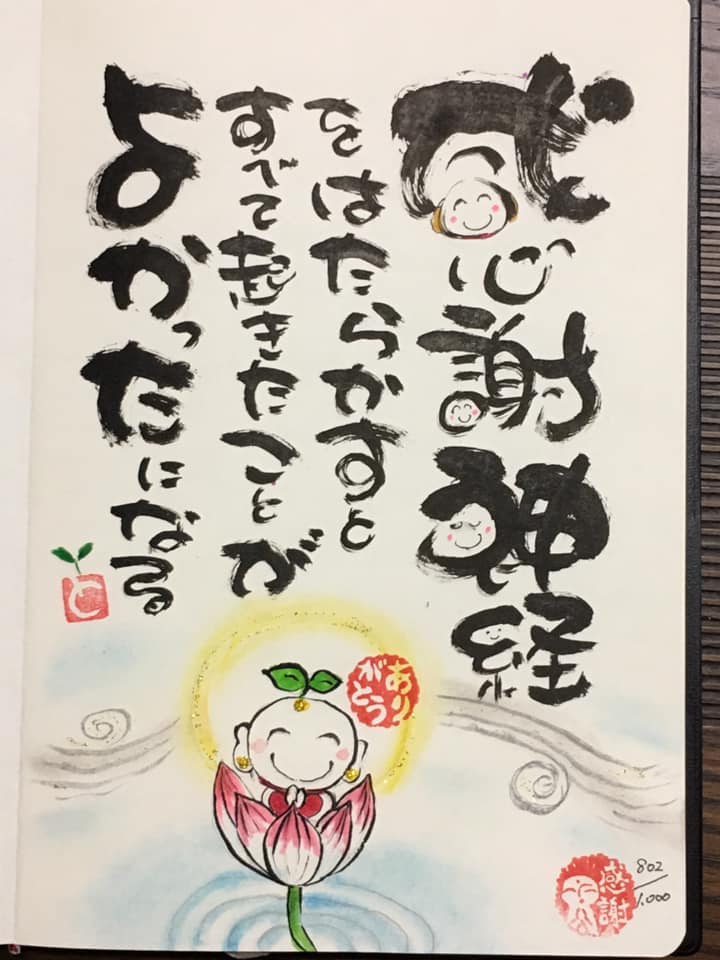 感謝神経
をはたらかすと
すべて起きたことが
よかったになる
と
ありがとう
感謝
802/1.000